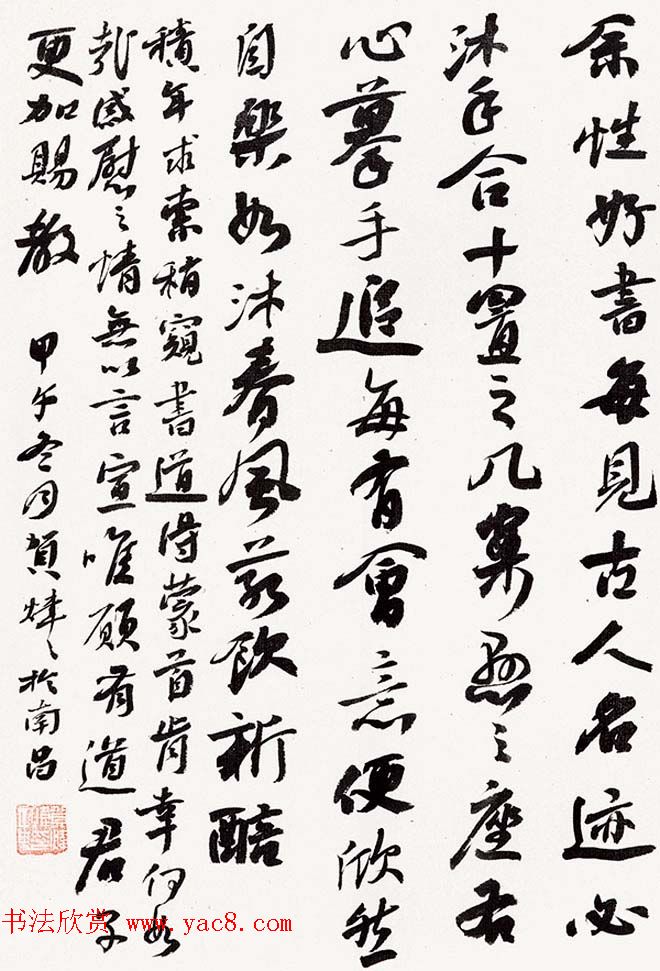 余性好書每見古人名迹必
沐手合十置之几案懸之座右
心摹手追每有會意便欣然
自樂如沐春風若飲新醅
積年求索稍窺書道得蒙首肯幸何如
哉感慰之情無以言宣唯願有道君子
更加賜教 甲午冬月賀煒々於南昌
书法欣赏 www.yac8.com